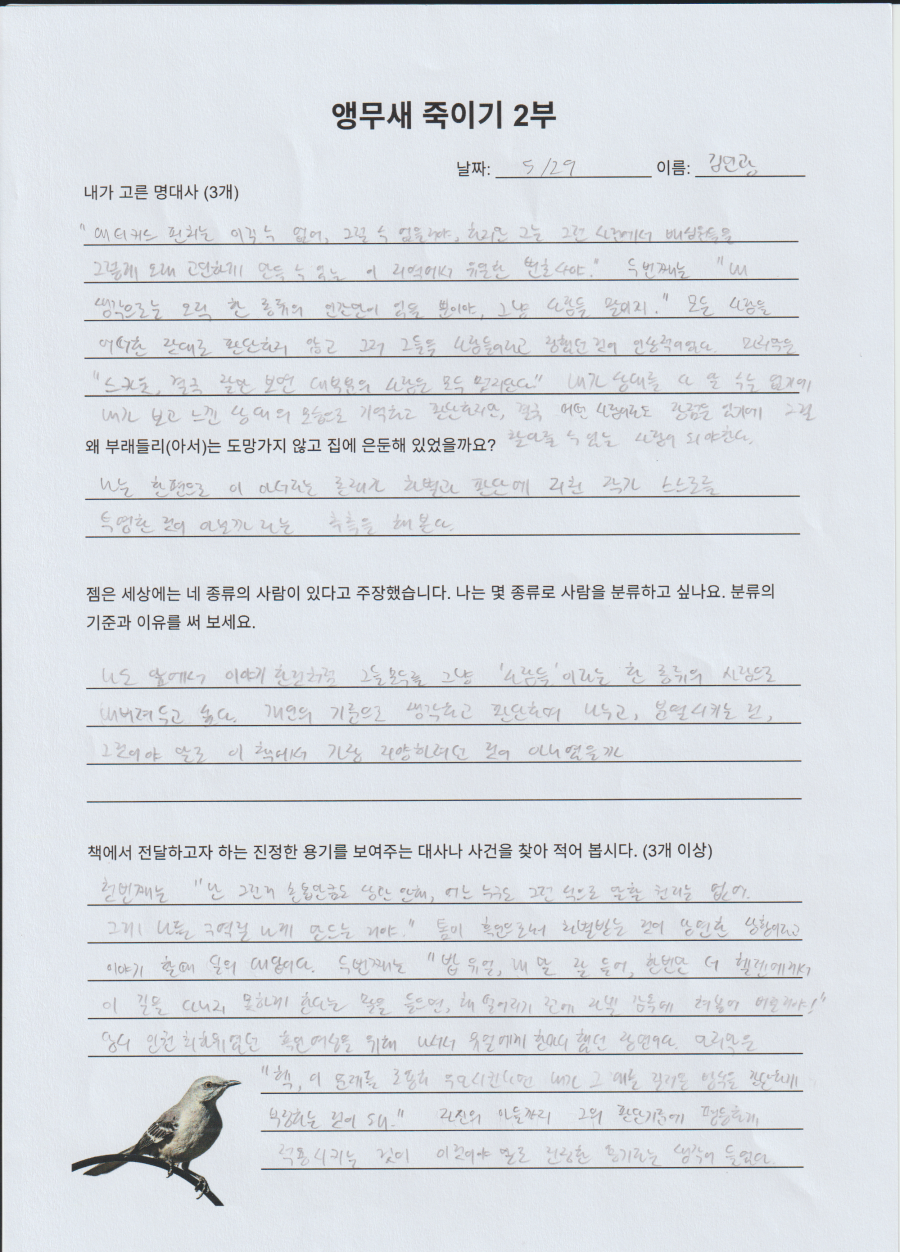 앵무새 죽이기 2부
날짜: 5/29 이름:
내가 고른 명대사 (3개)
"애티커스 핀치는 이길 수 없어, 그럴 수 없을거야, 하지만 그는 그런 사건에서 배심원들을
그렇게 오래 고민하게 만들 수 있는 이 지역에서 유일한 변호사야." 두번째는 "내
생각으로는 오직 한 종류의 인간만이 있을 뿐이야, 그냥 사람들 말이지." 모든 사람을
어떠한 잣대로 판단하지 않고 그저 그들을 사람들이라고 칭했던 것이 인상적이었다. 마지막은
"스카웃, 결국 잘만 보면 대부분의 사람은 모두 멋지단다" 내가 상대를 다 알 수는 없기에
내가 보고 느낀 상대의 모습으로 기억하고 판단하지만, 결국 어떤 사람이라도 장점은 있기에 그걸
왜 부래들리(아서)는 도망가지 않고 집에 은둔해 있었을까요? 알아볼 수 있는 사람이 되야한다.
나는 한편으로 이 아서라는 존재가 차별과 판단에 지친 작가 스스로를
투영한 것이 아닐까 라는 추측을 해 본다.
젬은 세상에는 네 종류의 사람이 있다고 주장했습니다. 나는 몇 종류로 사람을 분류하고 싶나요. 분류의
기준과 이유를 써 보세요.
나도 앞에서 이야기 한것처럼 그들모두를 그냥 '사람들'이라는 한 종류의 사람으로
내버려두고 싶다. 개인의 기준으로 생각하고 판단하며 나누고, 분열시키는 것,
그것이야 말로 이 책에서 가장 지양하려던 것이 아니였을까
책에서 전달하고자 하는 진정한 용기를 보여주는 대사나 사건을 찾아 적어 봅시다. (3개 이상)
첫번째는 "난 그런거 손톱만큼도 상관 안해, 어느 누구도 그런 식으로 말할 권리는 없어.
그게 나를 구역질 나게 만드는 거야." 톰이 흑인으로서 차별받는 것이 당연한 상황이라고
이야기 할때 딜의 대답이다. 두번째는 "밥 유얼, 내 말 잘 들어, 한번만 더 헬렌에게서
이 길을 다니지 못하게 한다는 말을 들으면, 해 떨어지기 전에 자넬 감옥에 처넣어 버리겠어!"
당시 인권 최하위였던 흑인여성을 위해 나서서 유얼에게 한마디 했던 장면이다. 마지막은
"헥, 이 문제를 조용히 무마시킨다면 내가 그 애를 길러온 방식을 간단하게
부정하는 것이 되네." 자신의 아들까지 그의 판단기준에 평등하게,
적용시키는 것이 이것이야 말로 진정한 용기라는 생각이 들었다.